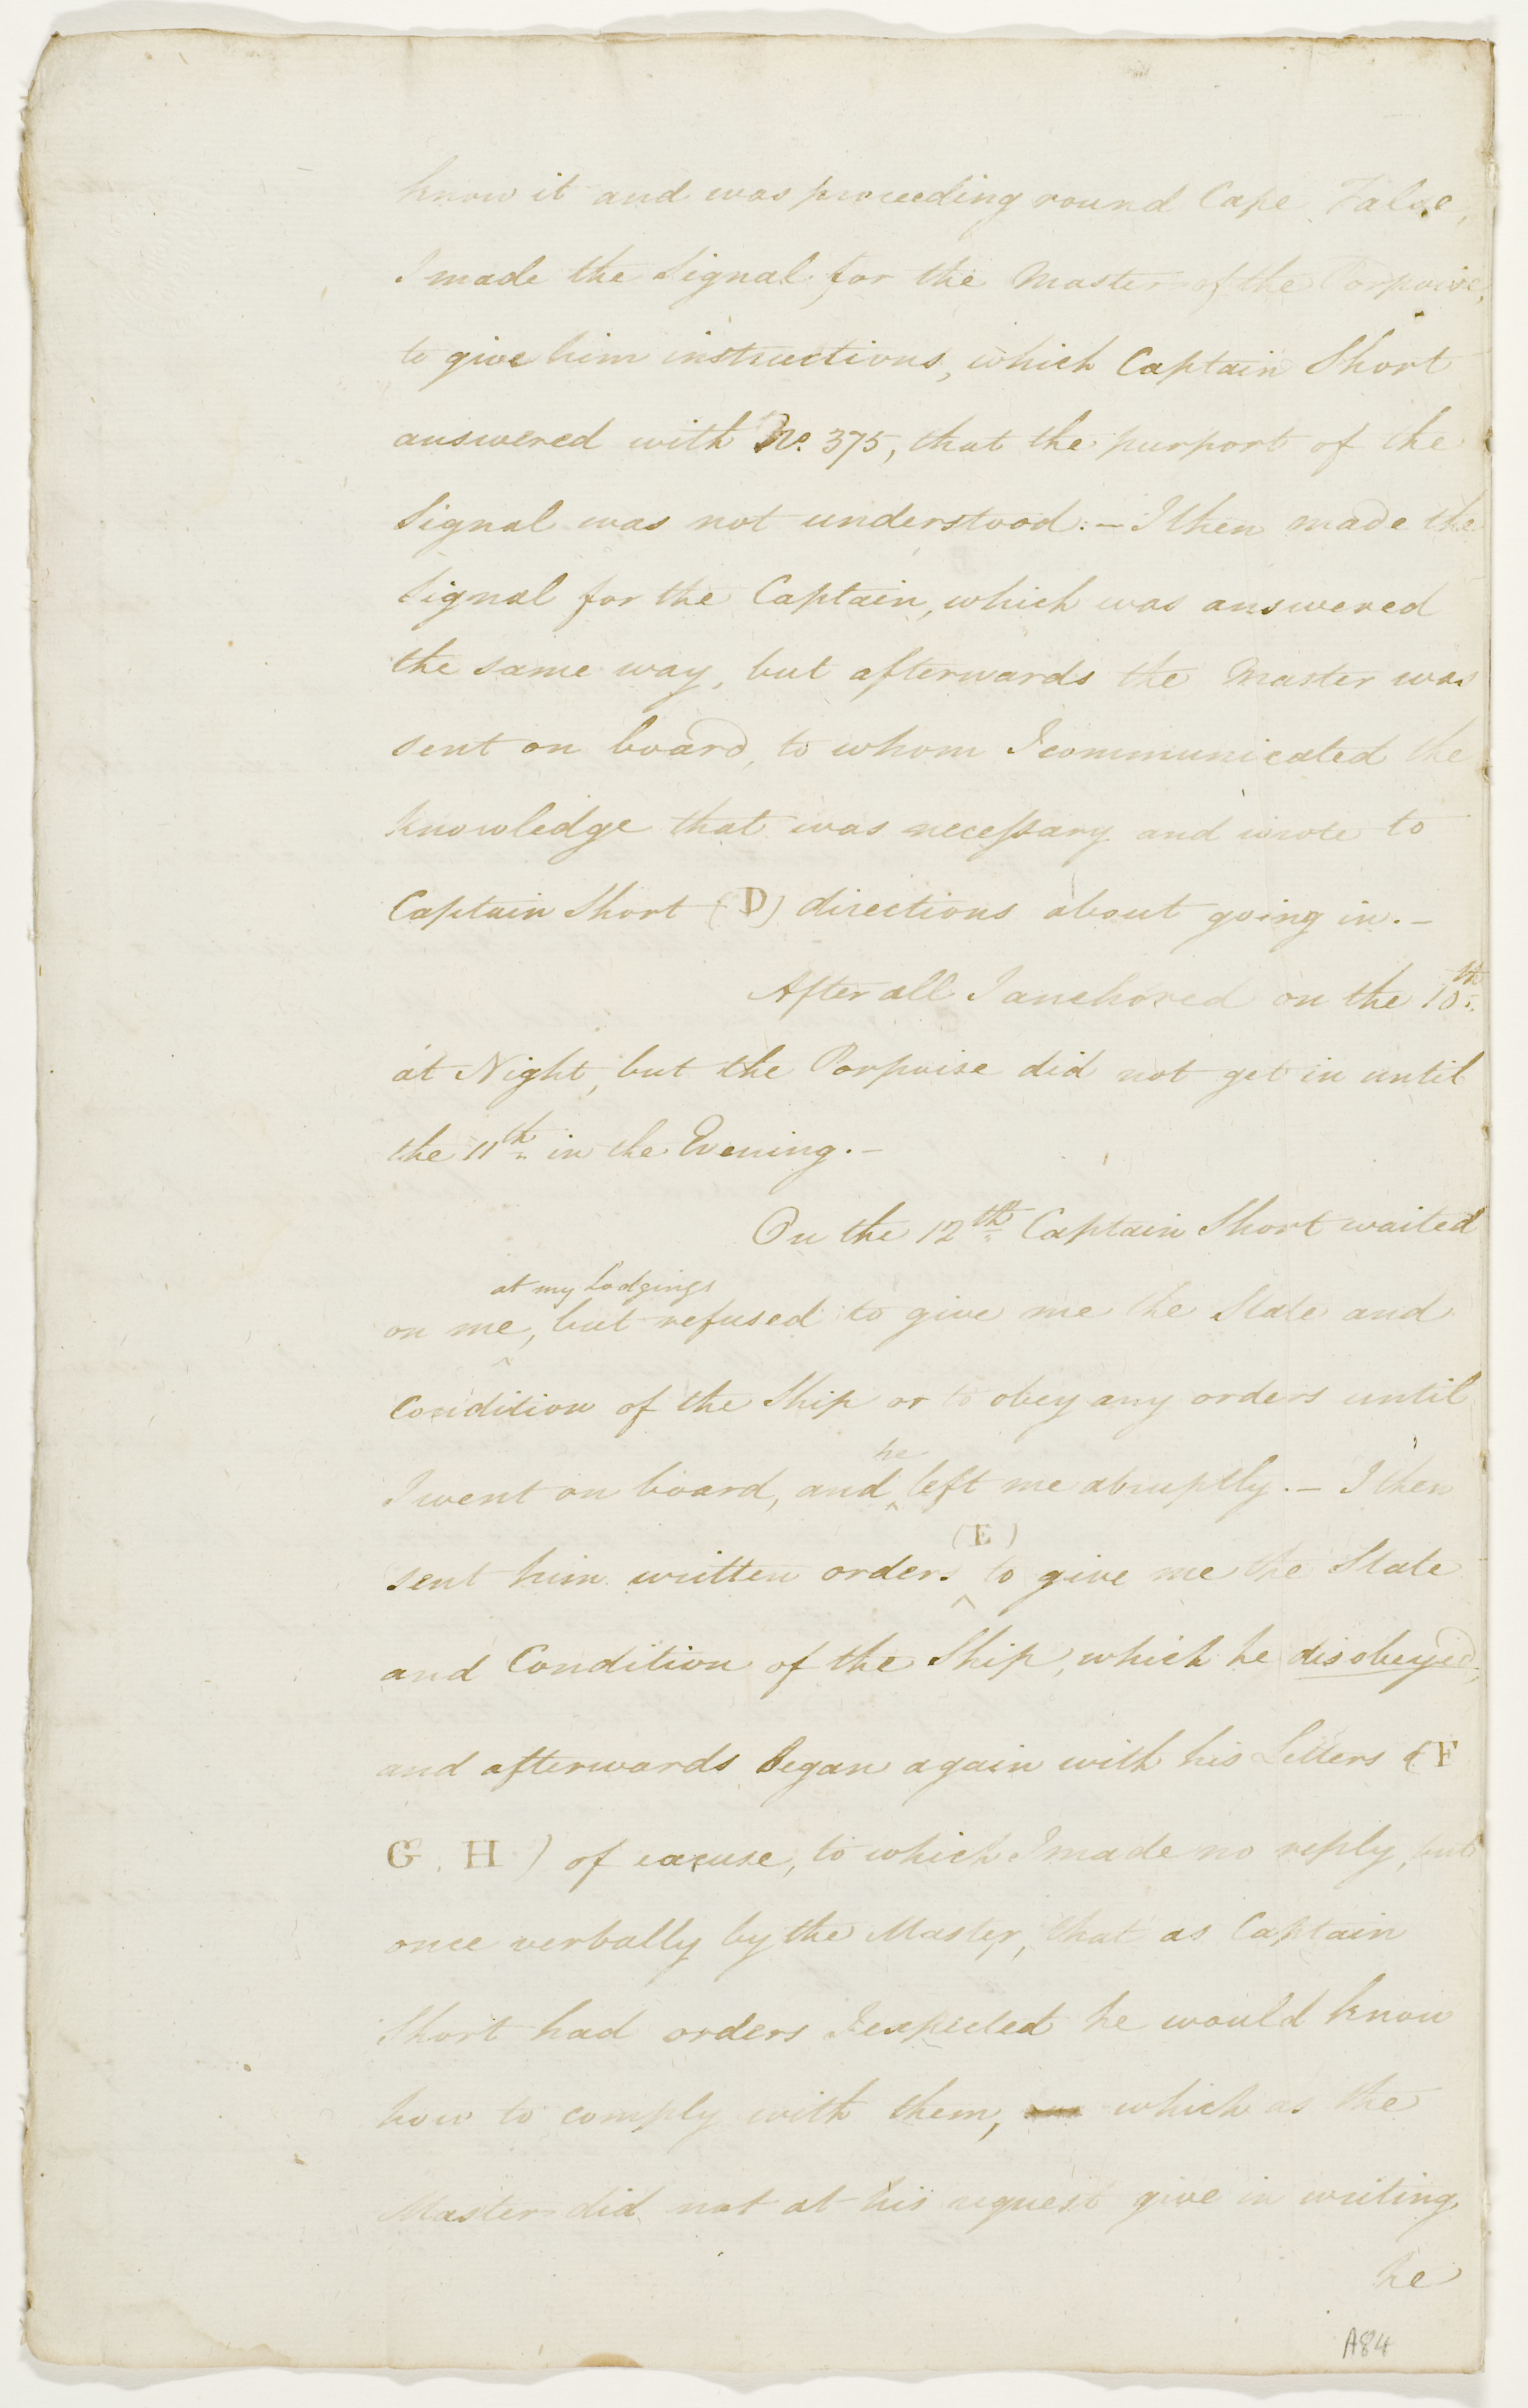 know it and was proceeding round Cape False,
I made the Signal for the Master of the Porpoise,
to give him instructions, which Captain Short
answered with No. 375, that the purport of the
Signal was not understood. – I then made the
Signal for the Captain, which was answered
the same way, but afterwards the Master was
sent on board, to whom I communicated the
knowledge that was necessary and wrote to
Captain Short (D) directions about going in. –
After all I anchored on the 10th
at Night, but the Porpoise did not get in until
the 11th in the Evening. –
On the 12th Captain Short waited
at my Lodgings
on me, but refused to give me the State and
Condition of the Ship or to obey any orders until
he
I went on board, and ^ left me abruptly. – I then
(E)
sent him written orders ^ to give me the State
and Condition of the Ship, which he disobeyed,
and afterwards began again with his Letters (F
G. H) of excuse, to which I made no reply, but
once verbally by the Master, that as Captain
Short had orders I expected he would know
how to comply with them, which as the
Master did not at his request give in writing
he
A84